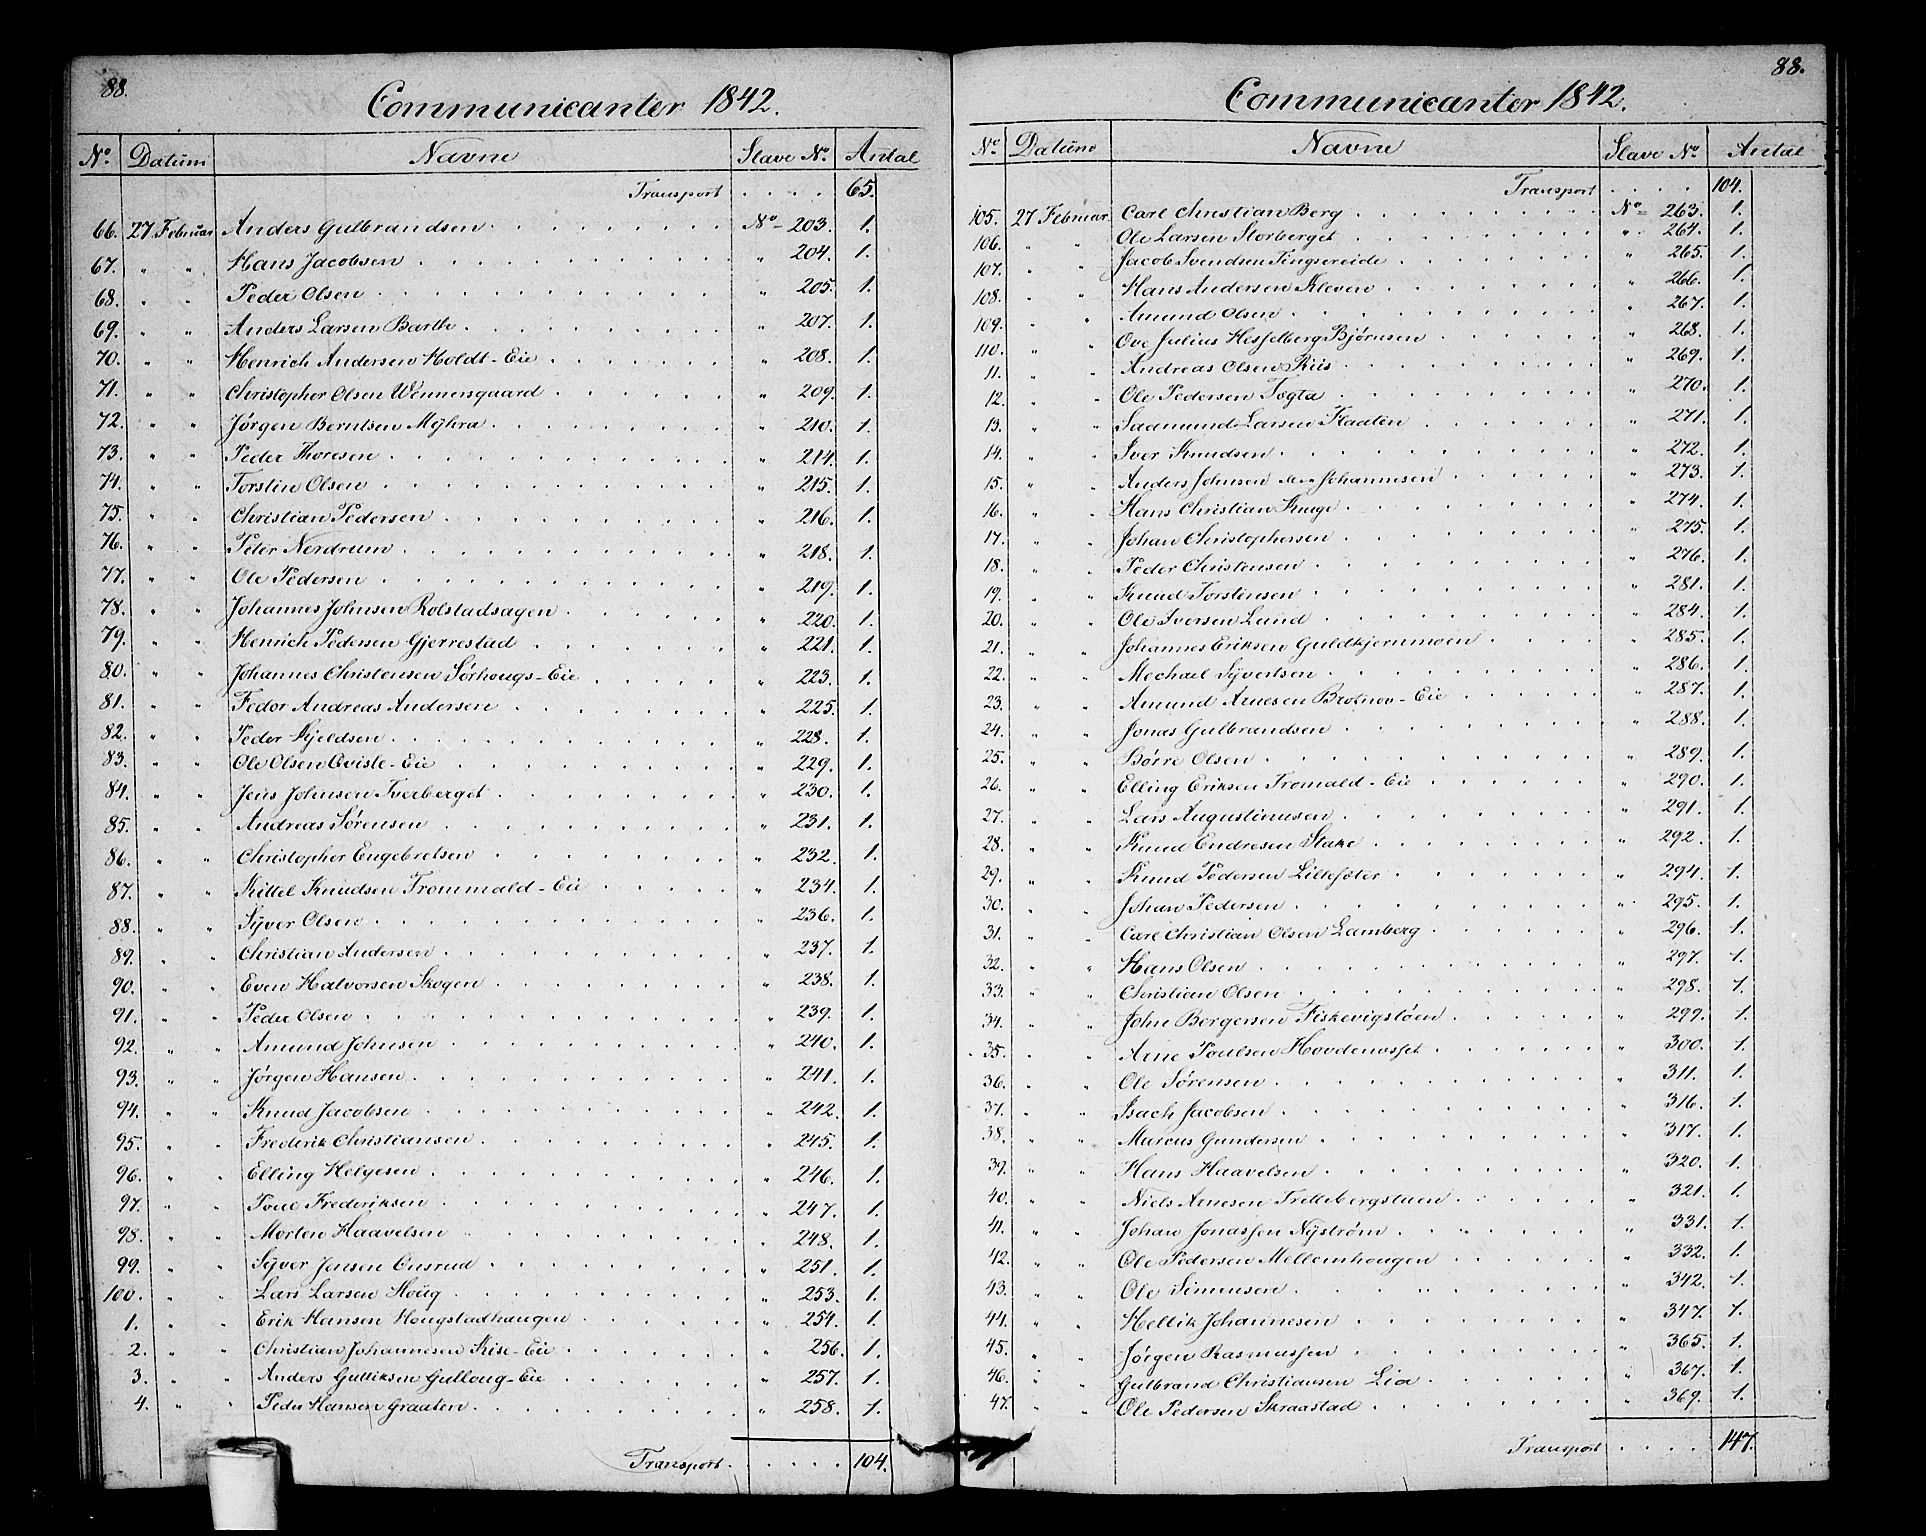 88.
Communicanter 1842.
No. Datum Navne Slave No. Antal
Transport . . . . 65.
66. 27 Februar Anders Gulbrandsen No 203. 1.
67. " " Hans Jacobsen " 204. 1.
68. " " Peder Olsen " 205. 1.
69. " " Anders Larsen Barth " 207. 1.
70. " " Henrich Andersen Holdt-Eie " 208. 1.
71. " " Christopher Olsen Wennersgaard " 209. 1.
72. " " Jørgen Berntsen Myhra " 210. 1.
73. " " Peder Thoresen " 214. 1.
74. " " Torsten Olsen " 215. 1.
75. " " Christian Pedersen " 216. 1.
76. " " Peter Nordrum " 218. 1.
77. " " Ole Pedersen " 219. 1.
78. " " Johannes Johnsen Rolstadsagen " 220. 1.
79. " " Henrich Pedersen Gjerrestad " 221. 1.
80. " " Johannes Christensen Sørhougs-Eie " 223. 1.
81. " " Fedor Andreas Andersen " 225. 1.
82. " " Peder Kjeldsen " 228. 1.
83. " " Ole Olsen Qviste-Eie " 229. 1.
84. " " Jens Johnsen Tverberget " 230. 1.
85. " " Andreas Sørensen " 231. 1.
86. " " Christopher Engebretsen " 232. 1.
87. " " Kittel Knudsen Trommald-Eie " 234. 1.
88. " " Syver Olsen " 236. 1.
89. " " Christian Andersen " 237. 1.
90. " " Even Halvorsen Skogen " 238. 1.
91. " " Peder Olsen " 239. 1.
92. " " Amund Johnsen " 240. 1.
93. " " Jørgen Hansen " 241. 1.
94. " " Knud Jacobsen " 242. 1.
95. " " Frederik Christiansen " 245. 1.
96. " " Elling Helgesen " 246. 1.
97. " " Poul Frederiksen " 247. 1.
98. " " Morten Haavelsen " 248. 1.
99. " " Syver Jensen Onsrud " 251. 1.
100. " " Lars Larsen Houg " 253. 1.
1. " " Erik Hansen Hougstadhaugen " 254. 1.
2. " " Christian Johannesen Kise-Eie " 256. 1.
3. " " Anders Gulliksen Gulloug-Eie " 257. 1.
4. " " Peder Hansen Graaten " 258. 1.
Transport . . . . . 104.
88.
Communicanter 1842.
No. Datum Navne Slave No Antal
Transport . . . . 104.
105. 27 Februar Carl Christian Berg No 263. 1.
106. " " Ole Larsen Storberget " 264. 1.
107. " " Jacob Svendsen Tingsereide " 265. 1.
108. " " Hans Andersen Kleven " 266. 1.
109. " " Amund Olsen " 267. 1.
110. " " Ove Julius Hesselberg Bjørnsen " 268. 1.
11. " " Andreas Olsen Riis " 269. 1.
12. " " Ole Pedersen Togta " 270. 1.
13. " " Saamund Larsen Flaaten " 271. 1.
14. " " Iver Knudsen " 272. 1.
15. " " Anders Johnsen eller Johannesen " 273. 1.
16. " " Hans Christian Kruge " 274. 1.
17. " " Johan Christophersen " 275. 1.
18. " " Peder Christensen " 276. 1.
19. " " Knud Torstensen " 281. 1.
20. " " Ole Iversen Lund " 284. 1.
21. " " Johannes Eriksen Guldkjernmoen " 285. 1.
22. " " Mechael Syvertsen " 286. 1.
23. " " Amund Arnesen Brotnov-Eie " 287. 1.
24. " " Jonas Gulbrandsen " 288. 1.
25. " " Børre Olsen " 289. 1.
26. " " Elling Eriksen Tromald-Eie " 290. 1.
27. " " Lars Augustinusen " 291. 1.
28. " " Knud Endresen Stake " 292. 1.
29. " " Knud Pedersen Lillesæter " 294. 1.
30. " " Johan Pedersen " 295. 1.
31. " " Carl Christian Olsen Lamberg " 296. 1.
32. " " Hans Olsen " 297. 1.
33. " " Christian Olsen " 298. 1.
34. " " John Borgersen Fiskevigsløen " 299. 1.
35. " " Arne Poulsen Hovdenasset " 300. 1.
36. " " Ole Sørensen " 311. 1.
37. " " Isach Jacobsen " 316. 1.
38. " " Marcus Gundersen " 317. 1.
39. " " Hans Haavelsen " 320. 1.
40. " " Niels Arnesen Trettebergstuen " 321. 1.
41. " " Johan Jonassen Nyström " 331. 1.
42. " " Ole Pedersen Mellemhougen " 332. 1.
43. " " Ole Simensen " 342. 1.
44. " " Hellik Johannesen " 347. 1.
45. " " Jørgen Rasmussen " 365. 1.
46. " " Gulbrand Christiansen Lia " 367. 1.
47. " " Ole Pedersen Skraastad " 369. 1.
Transport . . . . 147.